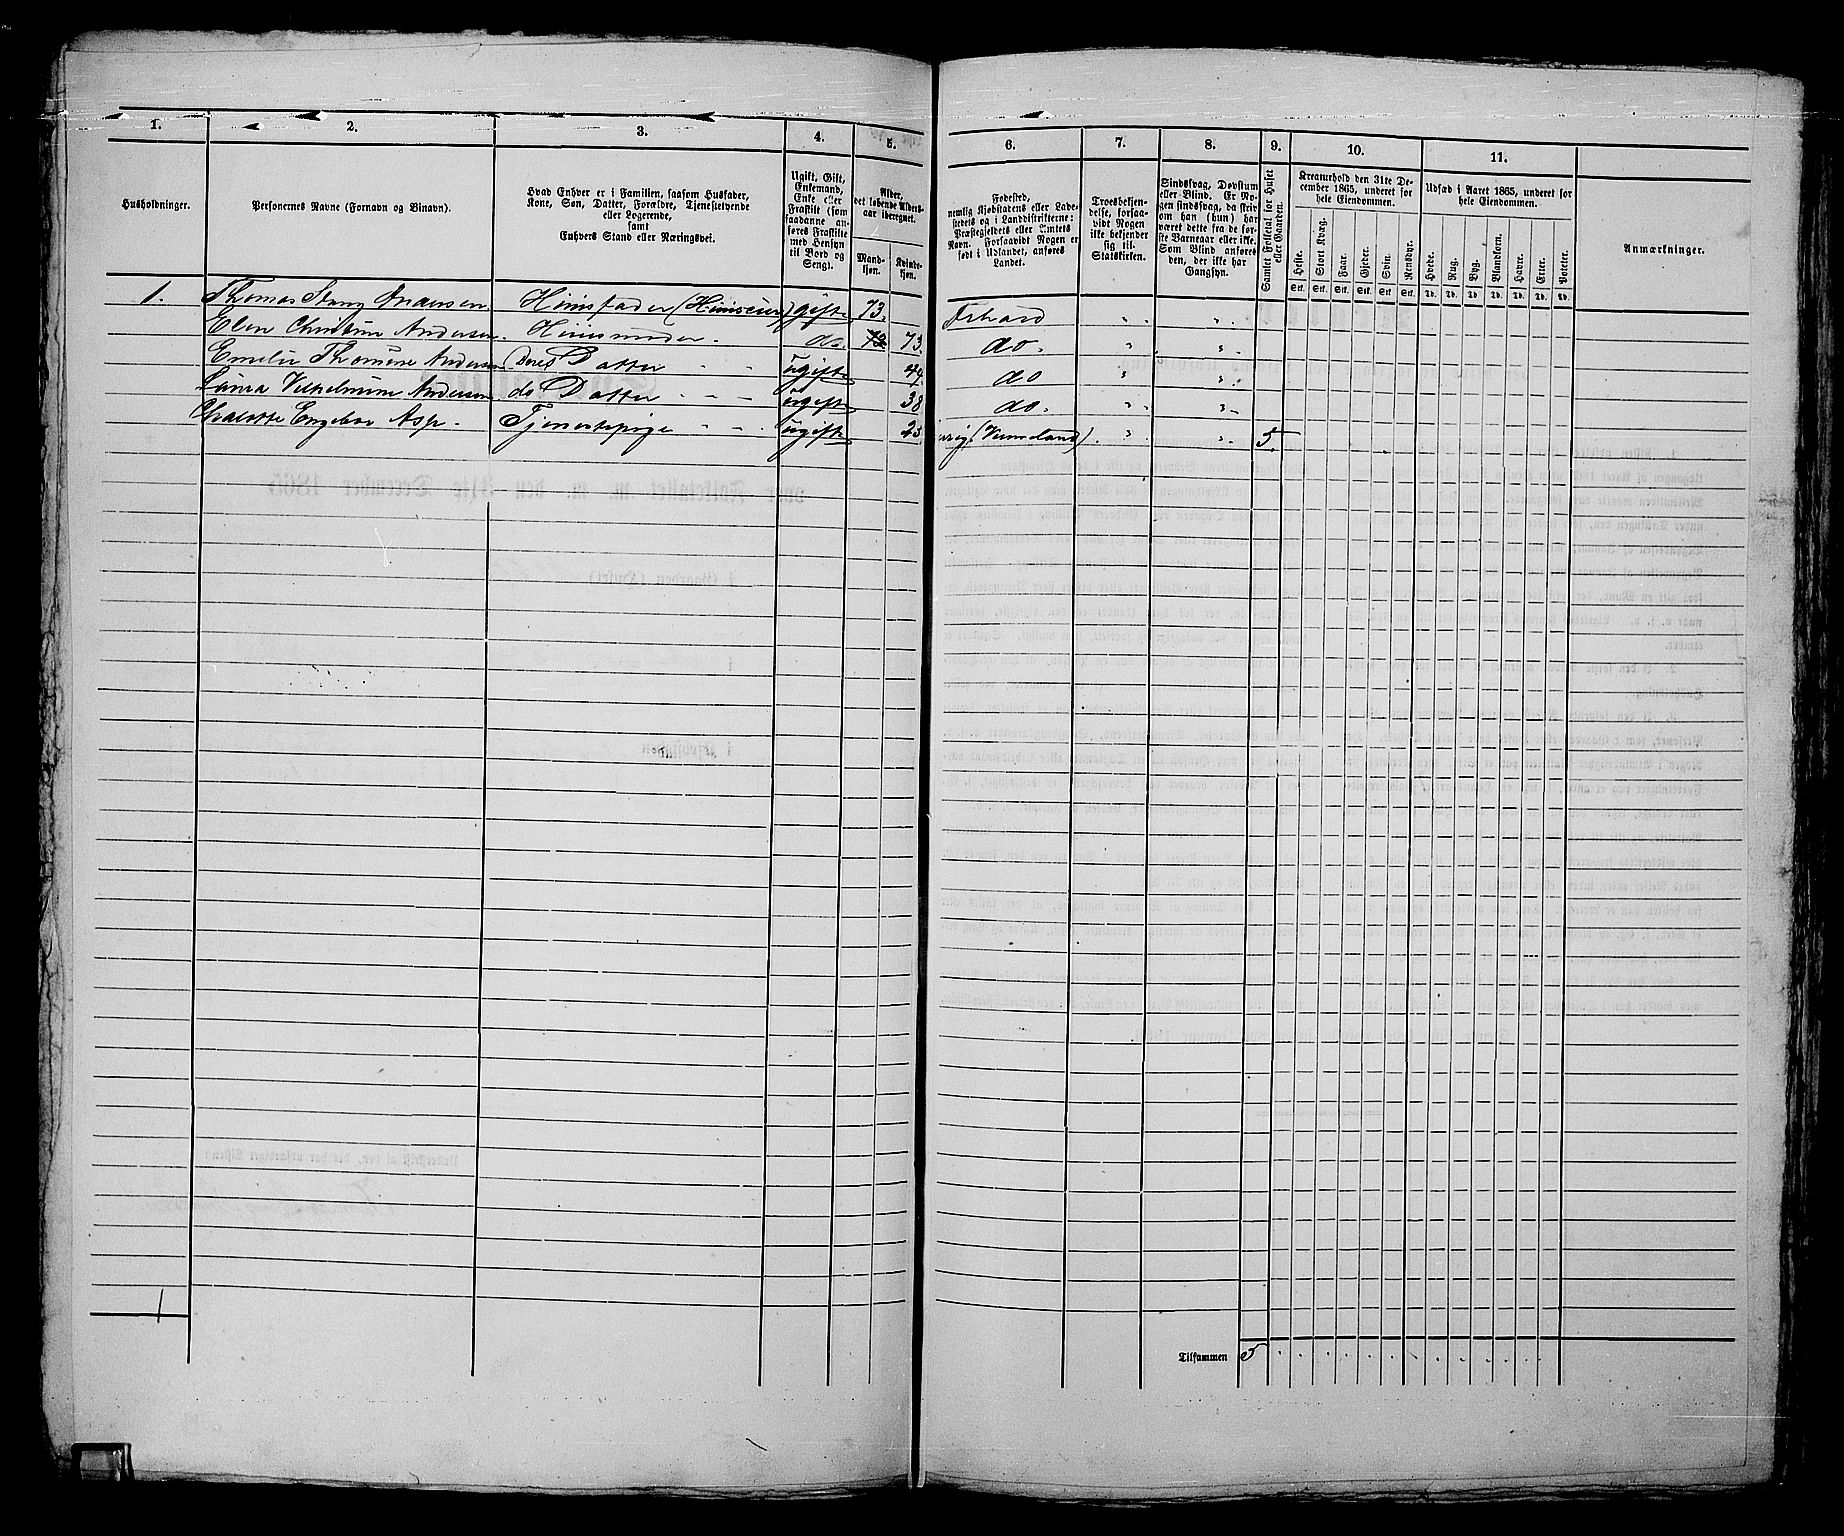 1.
2.
3.
4.
5.
6.
7.
8.
9.
10.
11.
Husholdninger.
Personernes Navne (Fornavn og Binavn).
Hvad Enhver er i Familien, saasom Husfader,
Kone, Søn, Datter, Forældre, Tjenestetyende
eller Logerende,
samt
Enhvers Stand eller Næringsvei.
Ugift, Gift,
Enkemand,
Enke eller
Fraskilt (som
saadanne an-
føres Fraskilte
med Hensyn
til Bord og
Seng).
Alder,
det løbende Alders-
aar iberegnet.
Mand-
kjøn.
Kvinde-
kjøn.
Fødested,
nemlig Kjøbstadens eller Lade-
stedets og i Landdistrikterne:
Præstegjeldets eller Amtets
Navn. Forsaavidt Nogen er
født i Udlandet, anføres
Landet.
Troesbekjen-
delse, forsaa-
vidt Nogen
ikke bekjender
sig til
Statskirken.
Sindssvag, Døvstum
eller Blind. Er No-
gen sindssvag, da skriv
om han (hun) har
været dette fra de før-
ste Barneaar eller ikke.
Som Blind anføres
den, der ikke har
Gangsyn.
Samlet Folketal for Huset
eller Gaarden.
Kreaturhold den 31te De-
cember 1865, underet for
hele Eiendommen.
Heste.
Stort Kvæg.
Faar.
Gjeder.
Svin.
Rensdyr.
Stk. Stk. Stk. Stk. Stk. Stk.
Udsæd i Aaret 1865, underet for
hele Eiendommen.
Hvede.
Rug.
Byg.
Blandkorn.
Havre.
Erter.
Poteter.
Td. Td. Td. Td. Td. Td. Td.
Anmærkninger.
1. Thomas Stang Andersen Huusfader (Huuseier) gift 73. Fr:hald " "
Elen Christine Andersen. Huusmoder. do. 73. do. " "
Emelie Thomine Andersen Deres Datter ugift 44. do " "
Laura Vilhelmine Andersen do Datter ugift 38 do. " "
Chalotte Engebor Asp. Tjenestepige ugift 23. (Vermeland). " " 5
1
Tilsammen 5